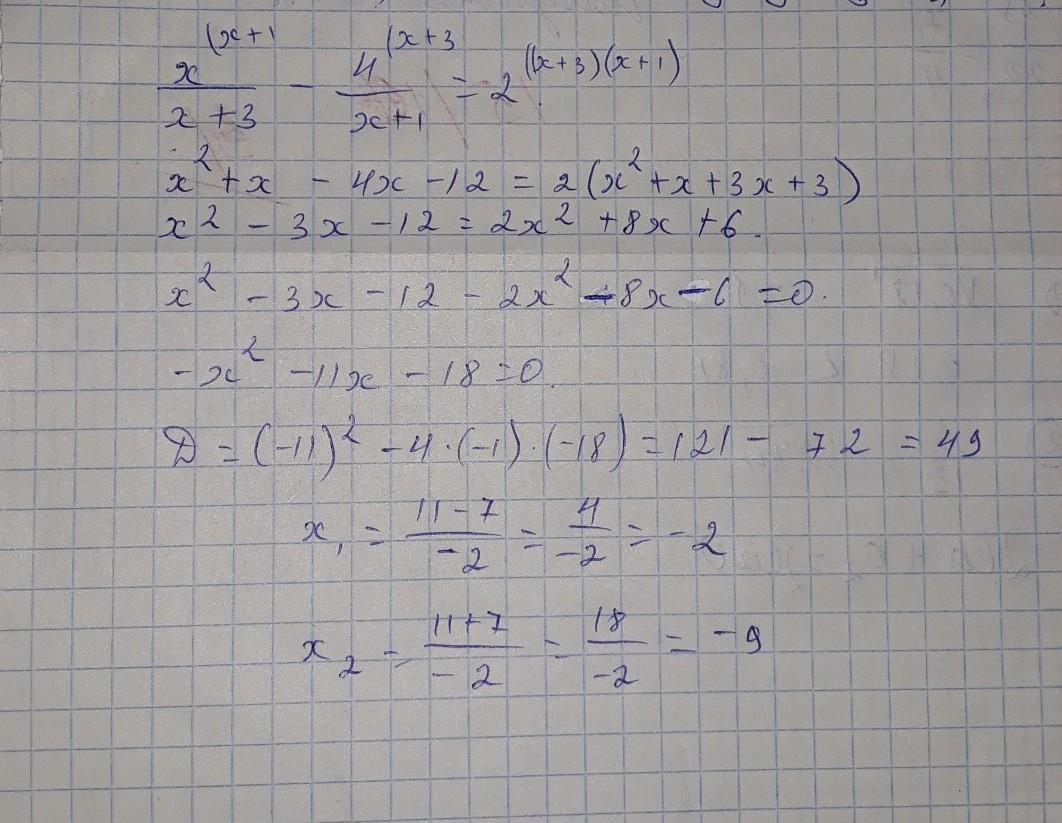 x^(x+1 / x+3 - 4^(x+3 / x+1 = 2^((x+3)(x+1)
x² + x - 4x - 12 = 2(x² + x + 3x + 3)
x² - 3x - 12 = 2x² + 8x + 6.
x² - 3x - 12 - 2x² - 8x - 6 = 0.
-x² - 11x - 18 = 0.
D = (-11)² - 4·(-1)·(-18) = 121 - 72 = 49
x₁ = 11-7 / -2 = 4 / -2 = -2
x₂ = 11+7 / -2 = 18 / -2 = -9